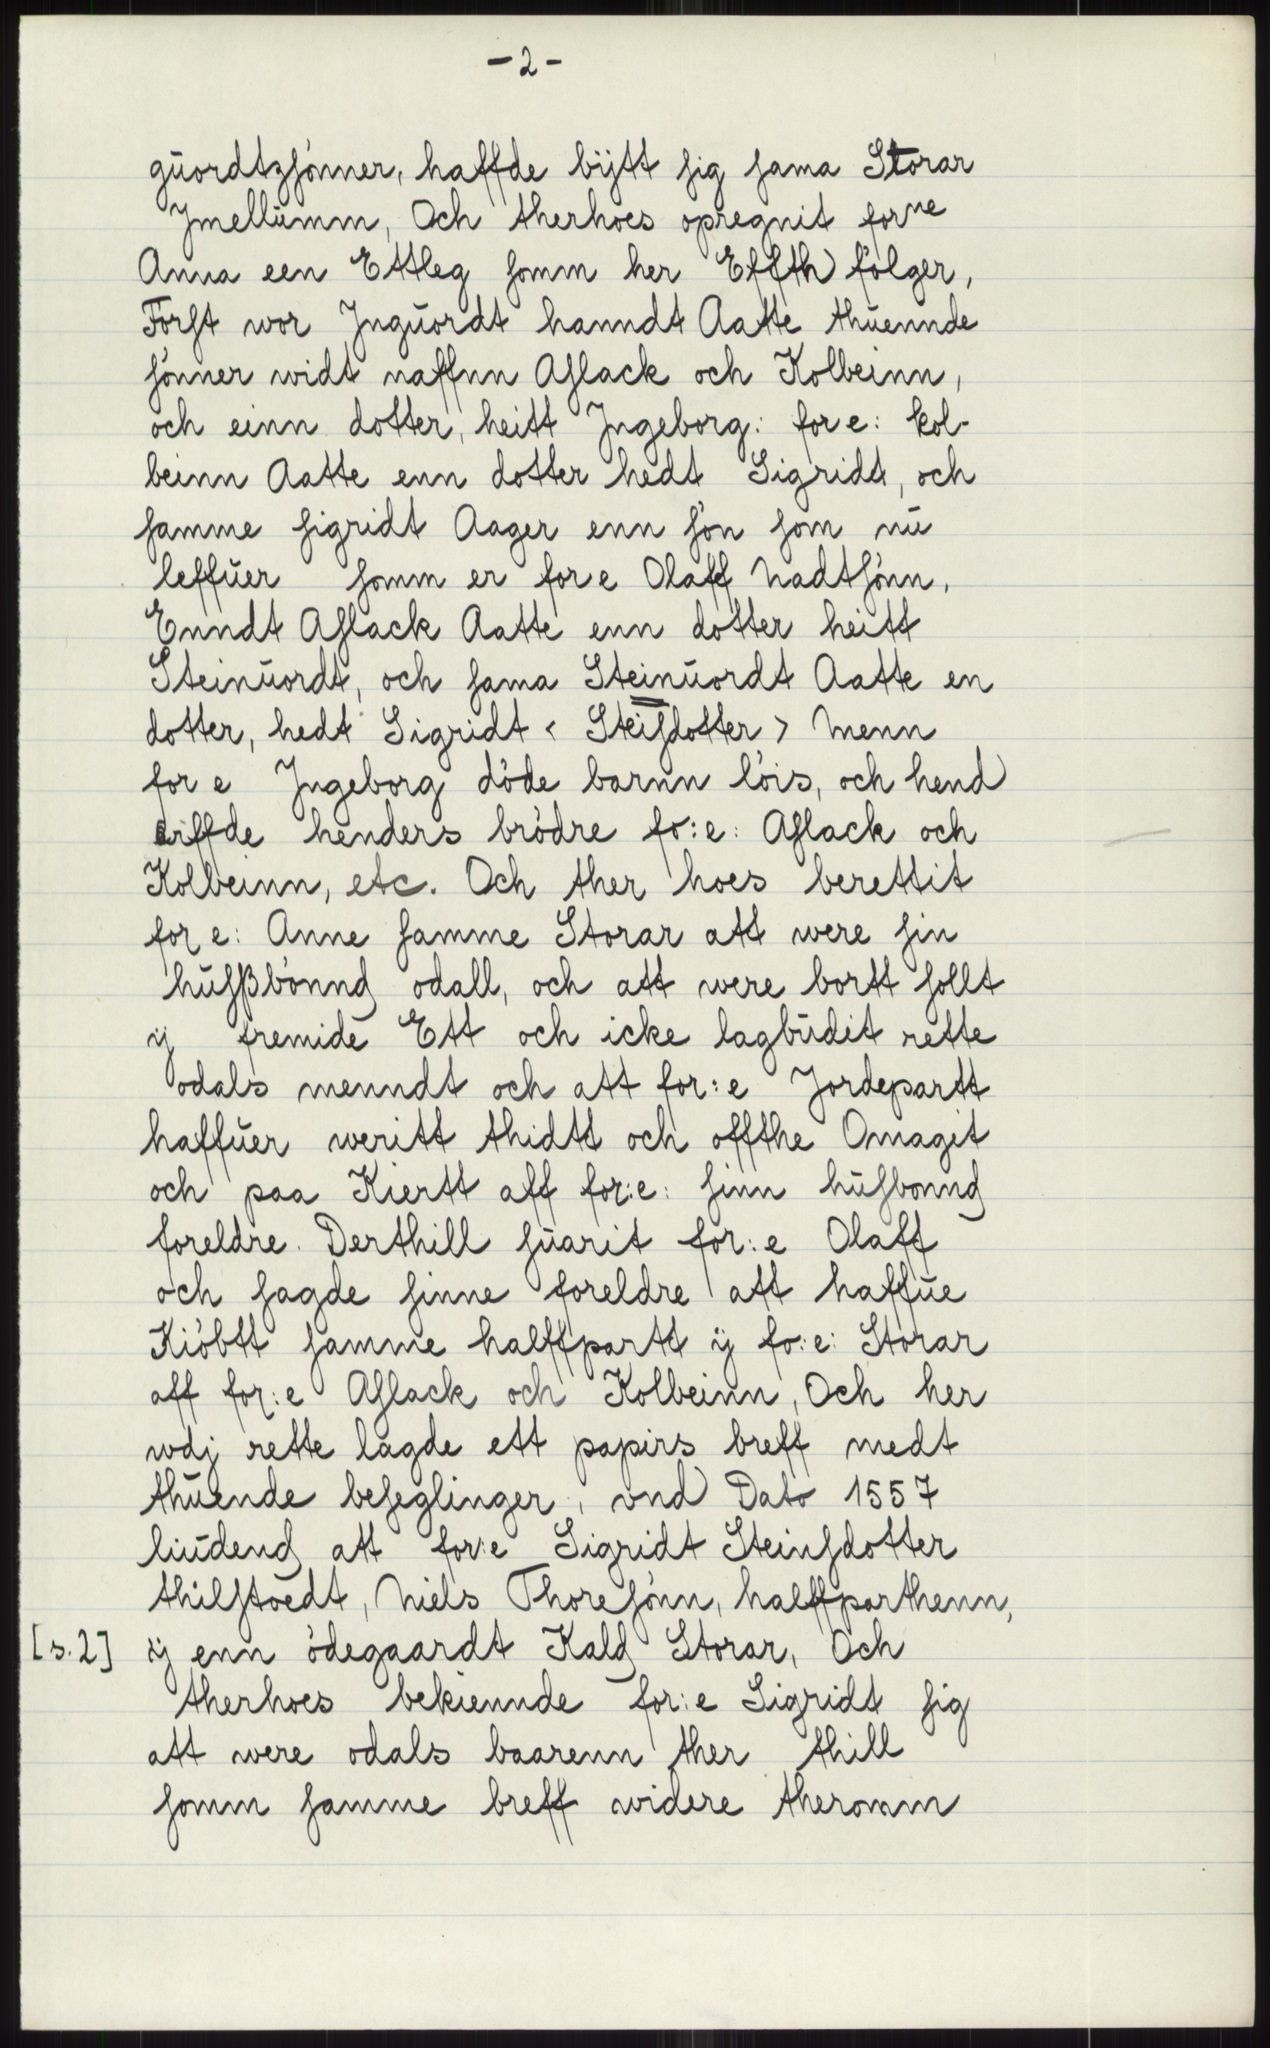 - 2 -
guordtzsónner, haffde bijtt sig sama Storar
Jmellumm, Och therhoes opregnit forne
Anna een Ettleg somm her Effth fölger,
Forst wor Jnguordt hanndt Aatte thuennde
sónner widt naffnn Aslack och Kolbeinn,
och einn dotter, heitt Jngeborg: for e: kol-
beinn Aatte enn dotter hedt Sigridt, och
samme sigridt Aager enn són som nu
leffuer somm er for e Olaff Nadtsónn.
Enndt Aslack Aatte enn dotter heitt
Steinuordt, och sama Steinuordt Aatte en
dotter, hedt Sigridt < Steisdotter > Menn
for e Jngeborg döde barnn löis, och hend
erffde henders brödre fo:e: Aslack och
Kolbeinn, etc. Och ther hoes berettit
for e: Anne samme Storar att were sin
husßbónnd odall, och att were bortt sollt
ij fremide Ett och icke lagbudit rette
odals menndt och att for:e Jordepartt
haffuer weritt thidtt och offthe Omagit
och paa Kiertt aff for:e: sinn husbonnd
foreldre. Derthill suarit for:e Olaff
och sagde sinne foreldre att haffue
Kióbtt samme halffpartt ij fo:e: Storar
aff for:e Aslack och Kolbeinn, Och her
wdj rette lagde ett papirs breff medt
thuende beseglinger, vnd Dato 1557
liudend att for:e Sigridt Steinsdotter
thilstoedt, Niels Thoresónn, halffparthenn,
[s.2] ij enn ödegaardt Kald Storar, Och
therhoes bekiennde for:e Sigridt sig
att were odals baarenn ther thill
somm samme breff widere theromm